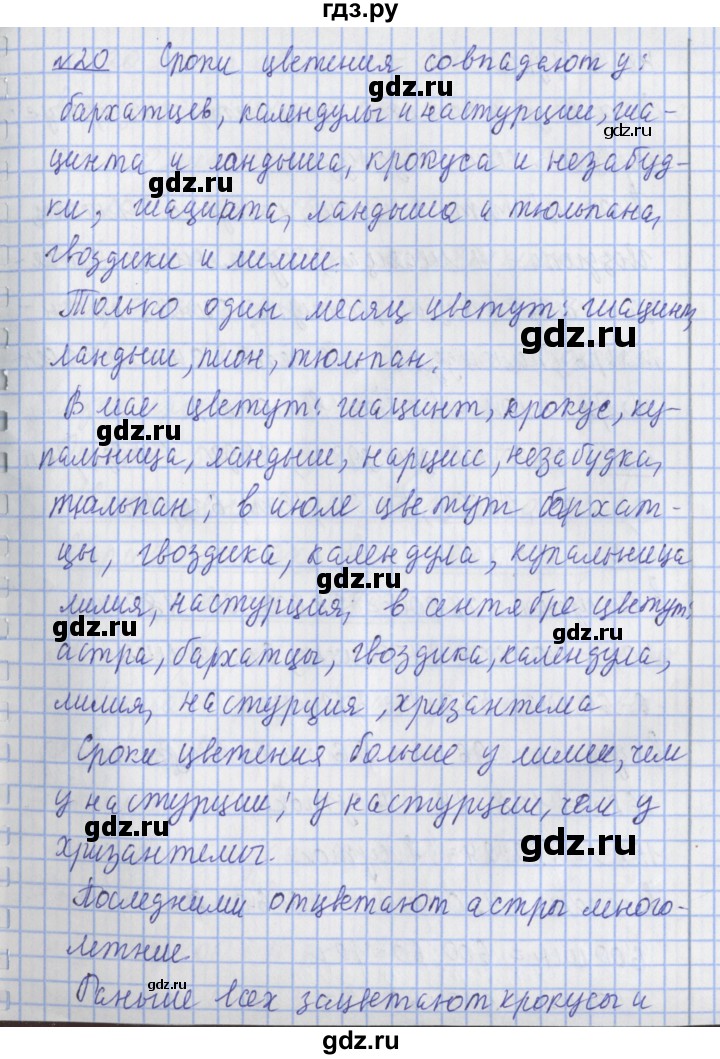 гдз.ру
№20 Сроки цветения совпадают у:
бархатцев, календулы и настурции, гиа-
цинта и ландыша, крокуса и незабуд-
ки, гиацинта, ландыша и тюльпана,
гвоздики и лилии
Только один месяц цветут: гиацинт,
ландыш, пион, тюльпан.
В мае цветут: гиацинт, крокус, ку-
пальница, ландыш, нарцисс, незабудка,
тюльпан; в июле цветут бархат-
цы, гвоздика, календула, купальница
лилия, настурция; в сентябре цветут:
астра, бархатцы, гвоздика, календула,
лилия, настурция, хризантема
Сроки цветения больше у лилии, чем
у настурции; у настурции, чем у
хризантемы.
Последними отцветают астры много-
летние
Раньше всех зацветают крокусы и
gdz.ru
gdz.ru
gdz.ru
gdz.ru
gdz.ru
gdz.ru
gdz.ru
gdz.ru
gdz.ru
gdz.ru
gdz.ru
gdz.ru
gdz.ru
gdz.ru